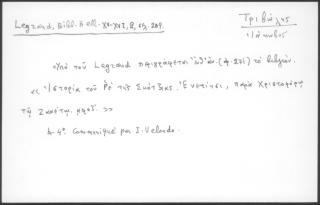 Legrand, Bibl. Hell. XV-XVI, 2, σελ. 209.
Τριβώλης
Ἰάκωβος
Ὑπὸ τοῦ Legrand περιγράφεται (ἀρ. 271) τὸ βιβλίον
« Ἱστορία τοῦ Ρὲ τῆς Σκότζιας. Ἐνετίησι, παρὰ Χριστοφόρῳ
τῷ Ζανέτῳ >>
4°. Communiqué par J. Veloudo.